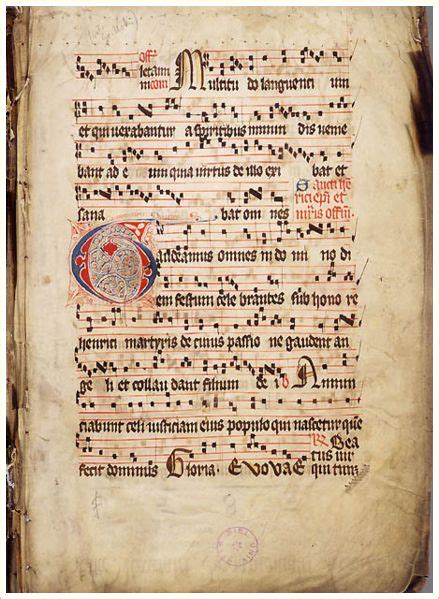 Offm̄
letam̄ Multitu do languenti um
et qui vexabantur a spiritibus inmun dis venie
bant ad e um quia virtus de illo exi bat et
sana bat om nes Sancti hē
rici epī et
mr̄is offm̄.
Gaudeamus omnes in do mi no di
em festum cele brantes sub hono re
henrici martyris de cuius passio ne gaudent an
ge li et collau dant filium de i Annun
ciabunt celi iusticiam eius populo qui nascetur que
fecit dominus Gloria. EVOVAE Bea
tus vir
qui tim